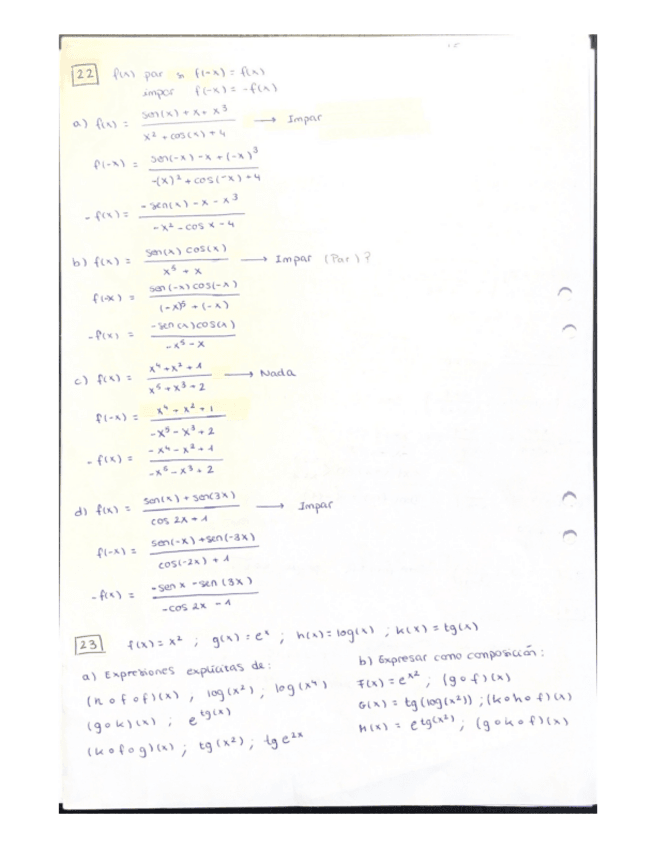 22 f(x) par si f(-x) = f(x)
impar f(-x) = -f(x)
a) f(x) = (sen(x) + x + x³) / (x² + cos(x) + 4) → Impar
f(-x) = (sen(-x) - x + (-x)³) / (-(x)² + cos(-x) + 4)
-f(x) = (-sen(x) - x - x³) / (-x² - cos x - 4)
b) f(x) = (sen(x) cos(x)) / (x⁵ + x) → Impar (Par)?
f(-x) = (sen(-x) cos(-x)) / ((-x)⁵ + (-x))
-f(x) = (-sen(x) cos(x)) / (-x⁵ - x)
c) f(x) = (x⁴ + x² + 1) / (x⁵ + x³ + 2) → Nada
f(-x) = (x⁴ + x² + 1) / (-x⁵ - x³ + 2)
-f(x) = (-x⁴ - x² + 1) / (-x⁵ - x³ + 2)
d) f(x) = (sen(x) + sen(3x)) / (cos 2x + 1) → Impar
f(-x) = (sen(-x) + sen(-3x)) / (cos(-2x) + 1)
-f(x) = (-sen x - sen(3x)) / (-cos 2x - 1)
23 f(x) = x² ; g(x) = eˣ ; h(x) = log(x) ; k(x) = tg(x)
a) Expresiones explícitas de :
(h o f o f)(x) , log(x²) ; log(x⁴)
(g o k)(x) ; e^tg(x)
(k o f o g)(x) ; tg(x²) ; tg e^2x
b) Expresar como composición :
F(x) = e^x² ; (g o f)(x)
G(x) = tg(log(x²)) ; (k o h o f)(x)
H(x) = e^tg(x²) ; (g o k o f)(x)